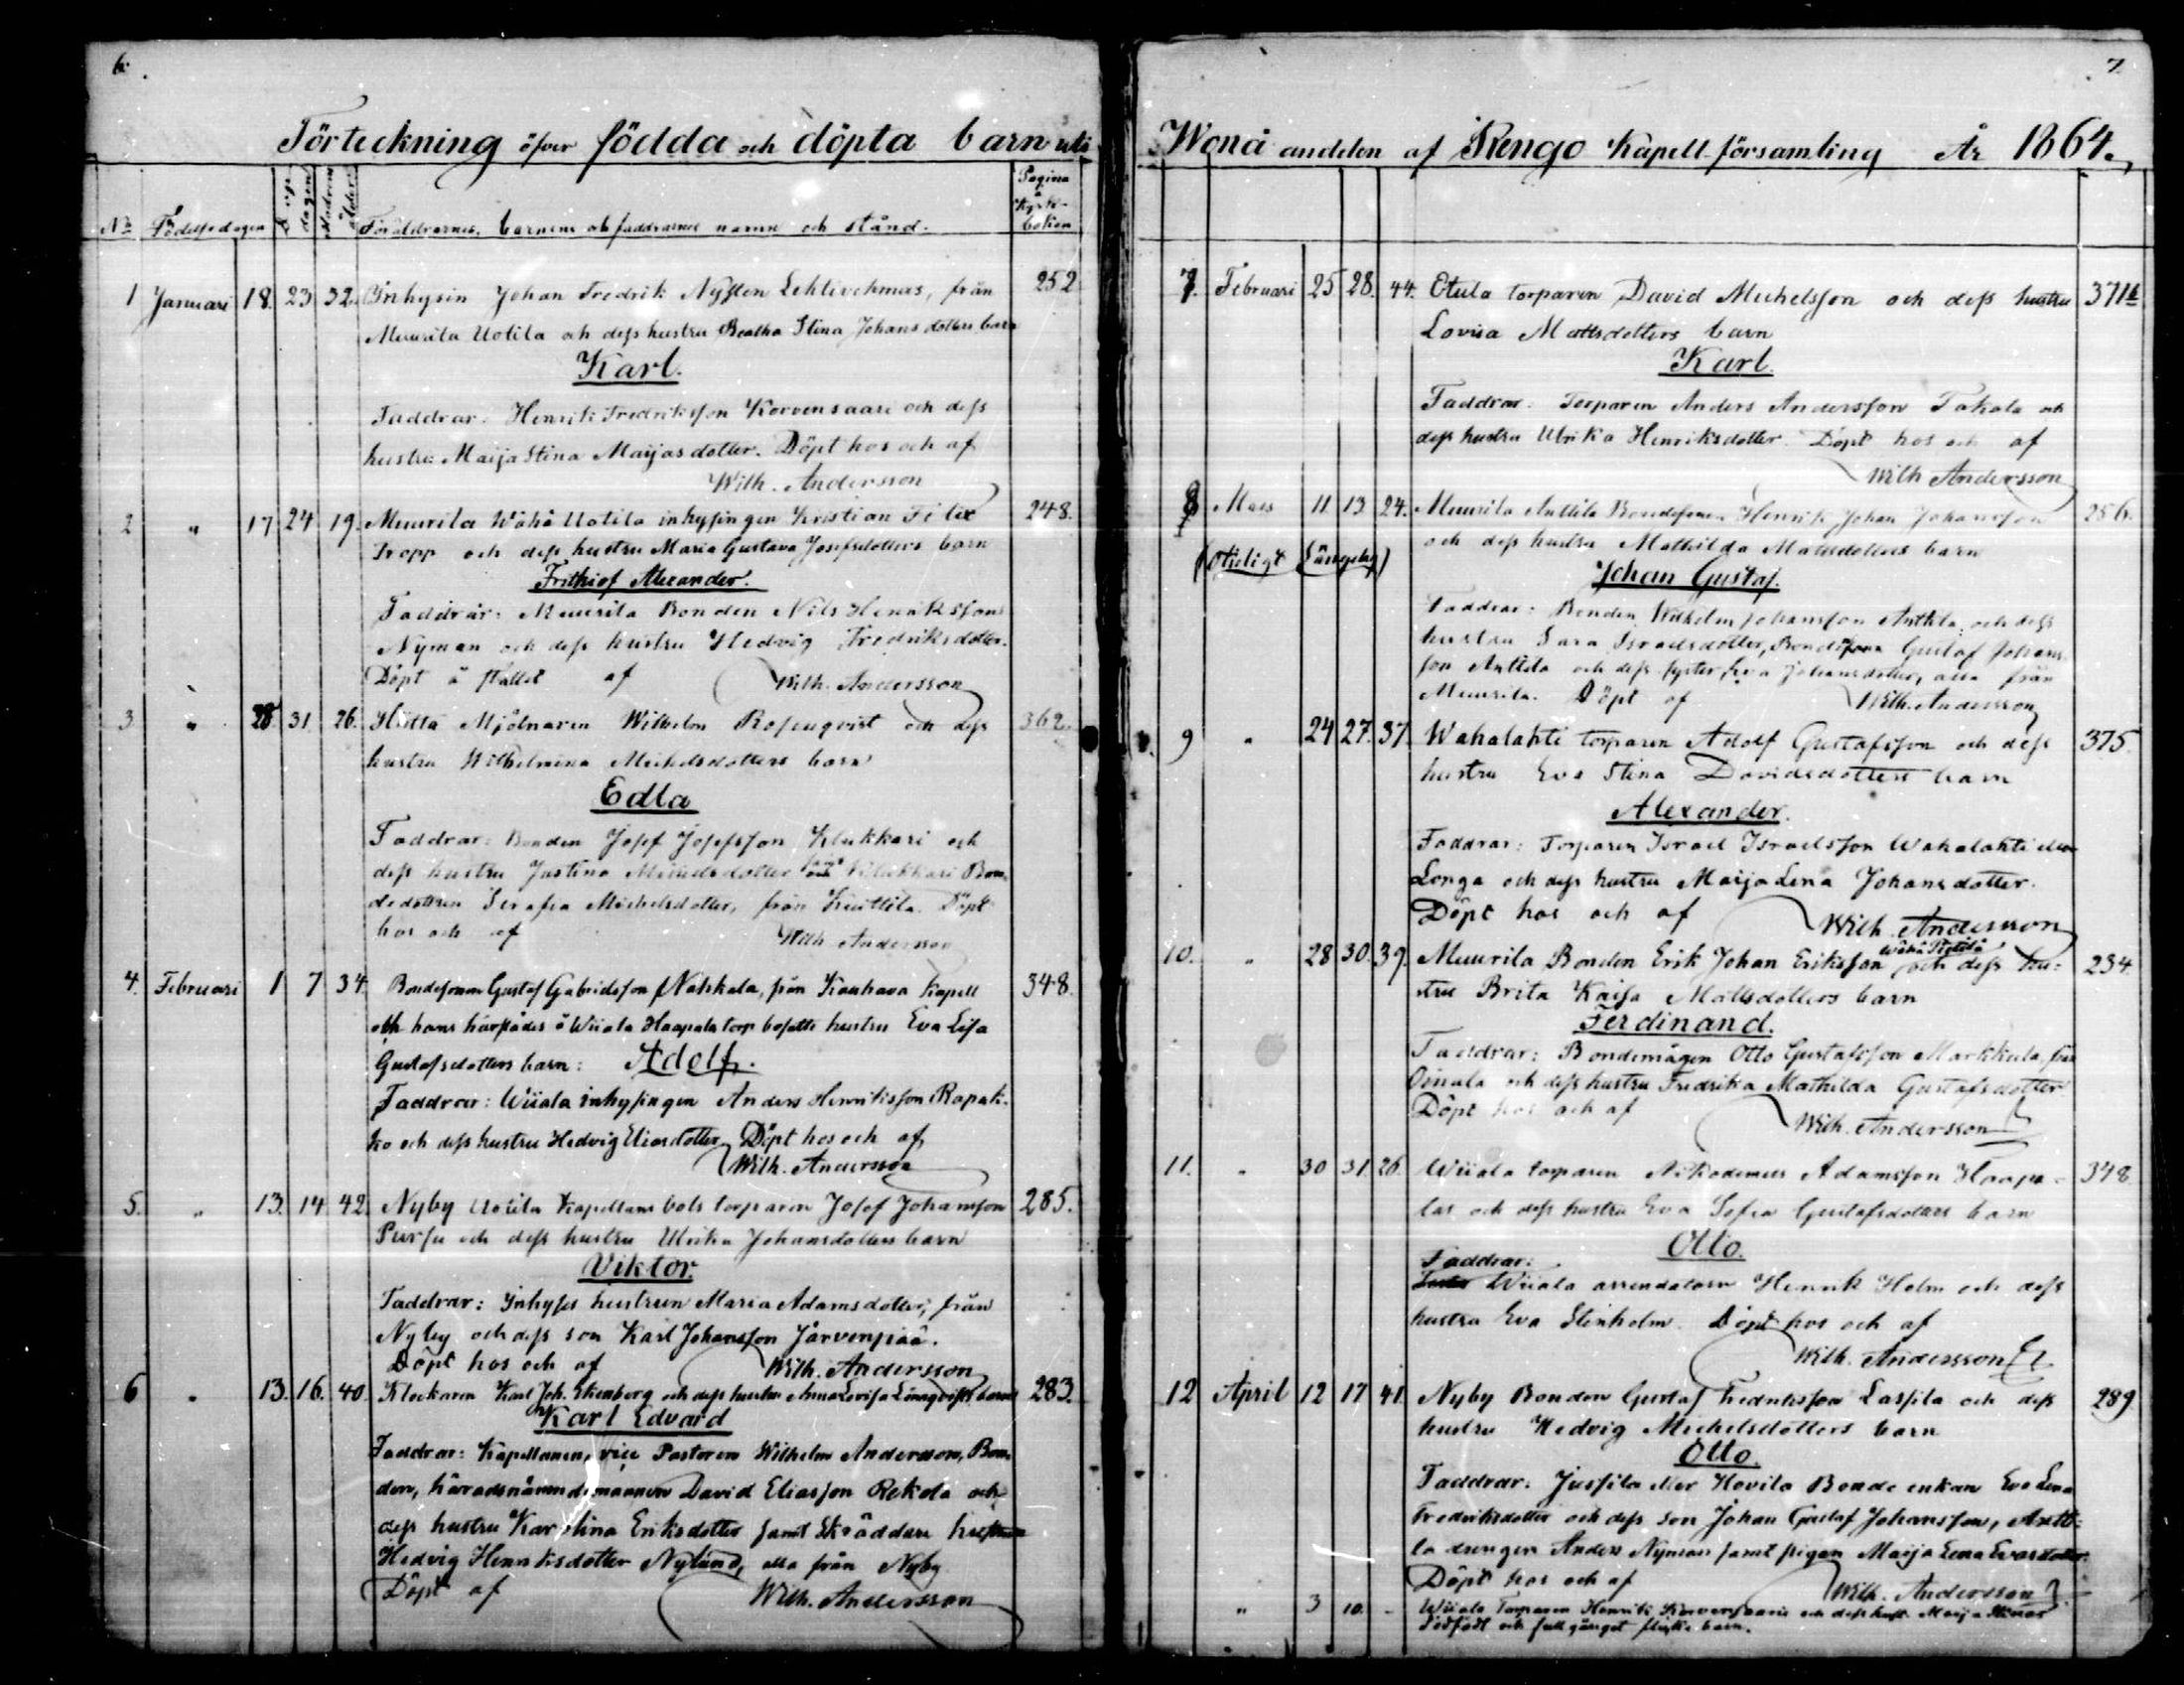 6.
Förteckning öfver födda och döpta barn uti
No Födelsedagen Döp dagen Modrens ålder Föräldrarnes, barnens och faddrarnes namn och stånd. Pagina i Kyrkoboken
1 Januari 18. 23 32. Inhysin Johan Fredrik Nysten Lehtivehmas, från 252
Muurila Uotila och dess hustru Beatha Stina Johansdotters barn
Karl.
Faddrar: Henrik Fredriksson Korvensaari och dess
hustru Maija Stina Maijasdotter. Döpt hos och af
Wilh. Andersson
2 " 17 24 19. Muurila Wähä Uotila inhysingen Kristian Felix 248.
Propp och dess hustru Maria Gustava Josefsdotters barn
Frithiof Alexander.
Faddrar: Muurila Bonden Nils Henriksson
Nyman och dess hustru Hedvig Fredriksdotter.
Döpt å stället af Wilh. Andersson
3 " 28 31. 26. Hiitta Mjölnaren Wilhelm Rosenqvist och dess 362.
hustru Wilhelmina Michelsdotters barn
Edla
Faddrar: Bonden Josef Josefsson Klukkari och
dess hustru Justina Michelsdotter samt Klukkari Bon-
dedottren Serafia Michelsdotter, från Knuttila. Döpt
hos och af Wilh. Andersson
4. Februari 1 7 34 Bondesonen Gustaf Gabrielsson Nahkala, från Kauhava Kapell 348.
och hans härstädes å Wiiala Haapala torp bosatte hustru Eva Lisa
Gustafsdotters barn: Adolf.
Faddrar: Wiiala inhysingen Anders Henriksson Rapak-
ko och dess hustru Hedvig Eliasdotter Döpt hos och af
Wilh. Andersson
5. " 13. 14 42 Nyby Uotila Kapellans bols torparen Josef Johansson 285.
Pursu och dess hustru Ulrika Johansdotters barn
Viktor.
Faddrar: Inhyses hustrun Maria Adamsdotter, från
Nyby och dess son Karl Johansson Järvenpää.
Döpt hos och af Wilh. Andersson
6 " 13. 16. 40. Klockaren Karl Joh. Ekenberg och dess hustru Anna Lovisa Linnqvists barn 283.
Karl Edvard
Faddrar: Kapellanen, vice Pastoren Wilhelm Andersson, Bon-
den, häradsnämndemannen David Eliasson Rekola och
dess hustru Karolina Eriksdotter samt Skräddare hustrun
Hedvig Henriksdotter Nylund, alla från Nyby
Döpt af Wilh. Andersson
7.
Wonå andelen af Kengo Kapell-församling År 1864.
7. Februari 25 28. 44. Otula torparen David Michelsson och dess hustru 371
Lovisa Mattsdotters barn
Karl.
Faddrar: Torparen Anders Andersson Takala och
dess hustru Ulrika Henriksdotter. Döpt hos och af
Wilh Andersson
8 Mars 11. 13 24. Muurila Anttila Bondesonen Henrik Johan Johansson 256.
och dess hustru Mathilda Mattsdotters barn
Johan Gustaf.
Faddrar: Bonden Wilhelm Johansson Anttila och dess
hustru Sara Israelsdotter, Bondesonen Gustaf Johans-
son Anttila och dess syster Eva Johansdotter, alla från
Muurila. Döpt af Wilh. Andersson
9 " 24 27. 37. Wahalahti torparen Adolf Gustafsson och dess 375.
hustru Eva Stina Davidsdotters barn
Alexander.
Faddrar: Torparen Israel Israelsson Wahalahti eller
Longa och dess hustru Maija Lena Johansdotter.
Döpt hos och af Wilh. Andersson
10. " 28 30. 39. Muurila Bonden Erik Johan Eriksson och dess hu- 234
stru Brita Kaisa Mattsdotters barn
Ferdinand.
Faddrar: Bondemågen Otto Gustafsson Markkula, från
Oinala och dess hustru Fredrika Mathilda Gustafsdotter
Döpt hos och af Wilh. Andersson
11. " 30 31. 26 Wiiala torparen Nikodemus Adamsson Haapa- 348
las och dess hustru Eva Sofia Gustafsdotters barn
Otto.
Faddrar:
Wiiala arrendatorn Henrik Holm och dess
hustru Eva Stenholm. Döpt hos och af
Wilh. Andersson
12 April 12 17 41. Nyby Bonden Gustaf Fredriksson Lassila och dess 289
hustru Hedvig Michelsdotters barn
Otto.
Faddrar: Jussila eller Hovila Bonde enkan Eva Lena
Fredriksdotter och dess son Johan Gustaf Johansson, Antti-
la drengen Anders Nyman samt pigan Maija Lena Evasdotter.
Döpt hos och af Wilh. Andersson
" 3 10. - Wiiala Torparen Henrik Korvensaaris och dess hust. Maija Stinas
dödfödt och fullgånget flicke barn.